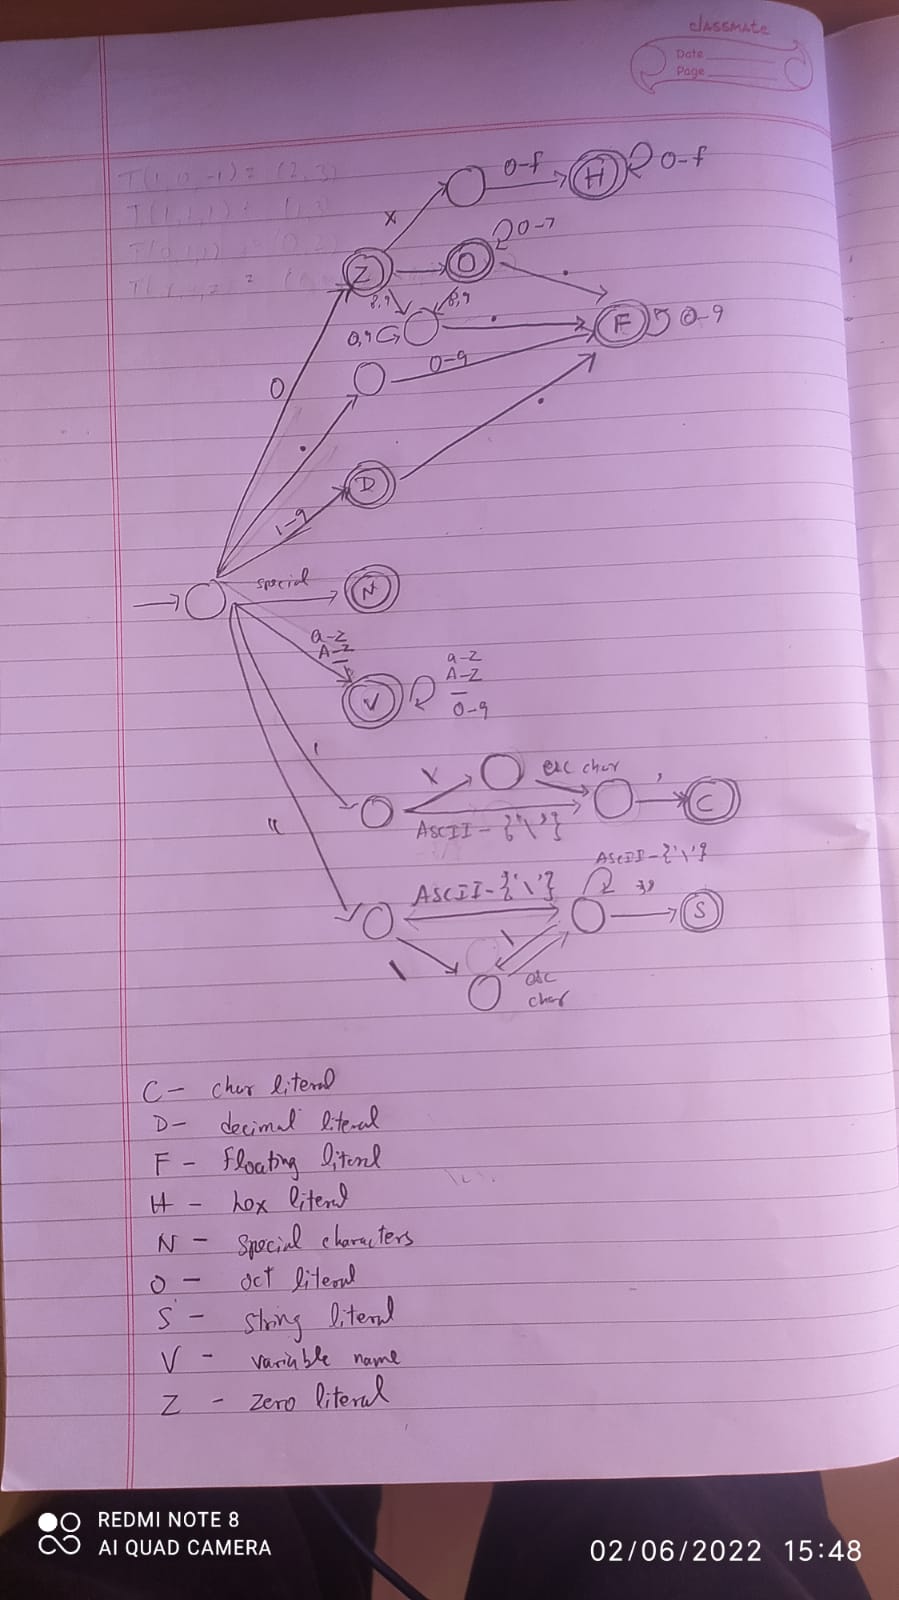 classmate
Date
Page
0-f
H
0-f
x
Z
O
0-7
.
8,9
8,9
0,9
.
F
0-9
0-9
0
.
D
.
1-9
special
N
a-z
A-Z
_
V
a-z
A-Z
_
0-9
'
\
esc char
'
C
ASCII - {'\'}
"
ASCII - {'\'}
ASCII - {'\'}
"
S
\
\
esc
char
C - char literal
D - decimal literal
F - Floating literal
H - hex literal
N - special characters
O - oct literal
S - string literal
V - variable name
Z - zero literal
REDMI NOTE 8
AI QUAD CAMERA
02/06/2022 15:48